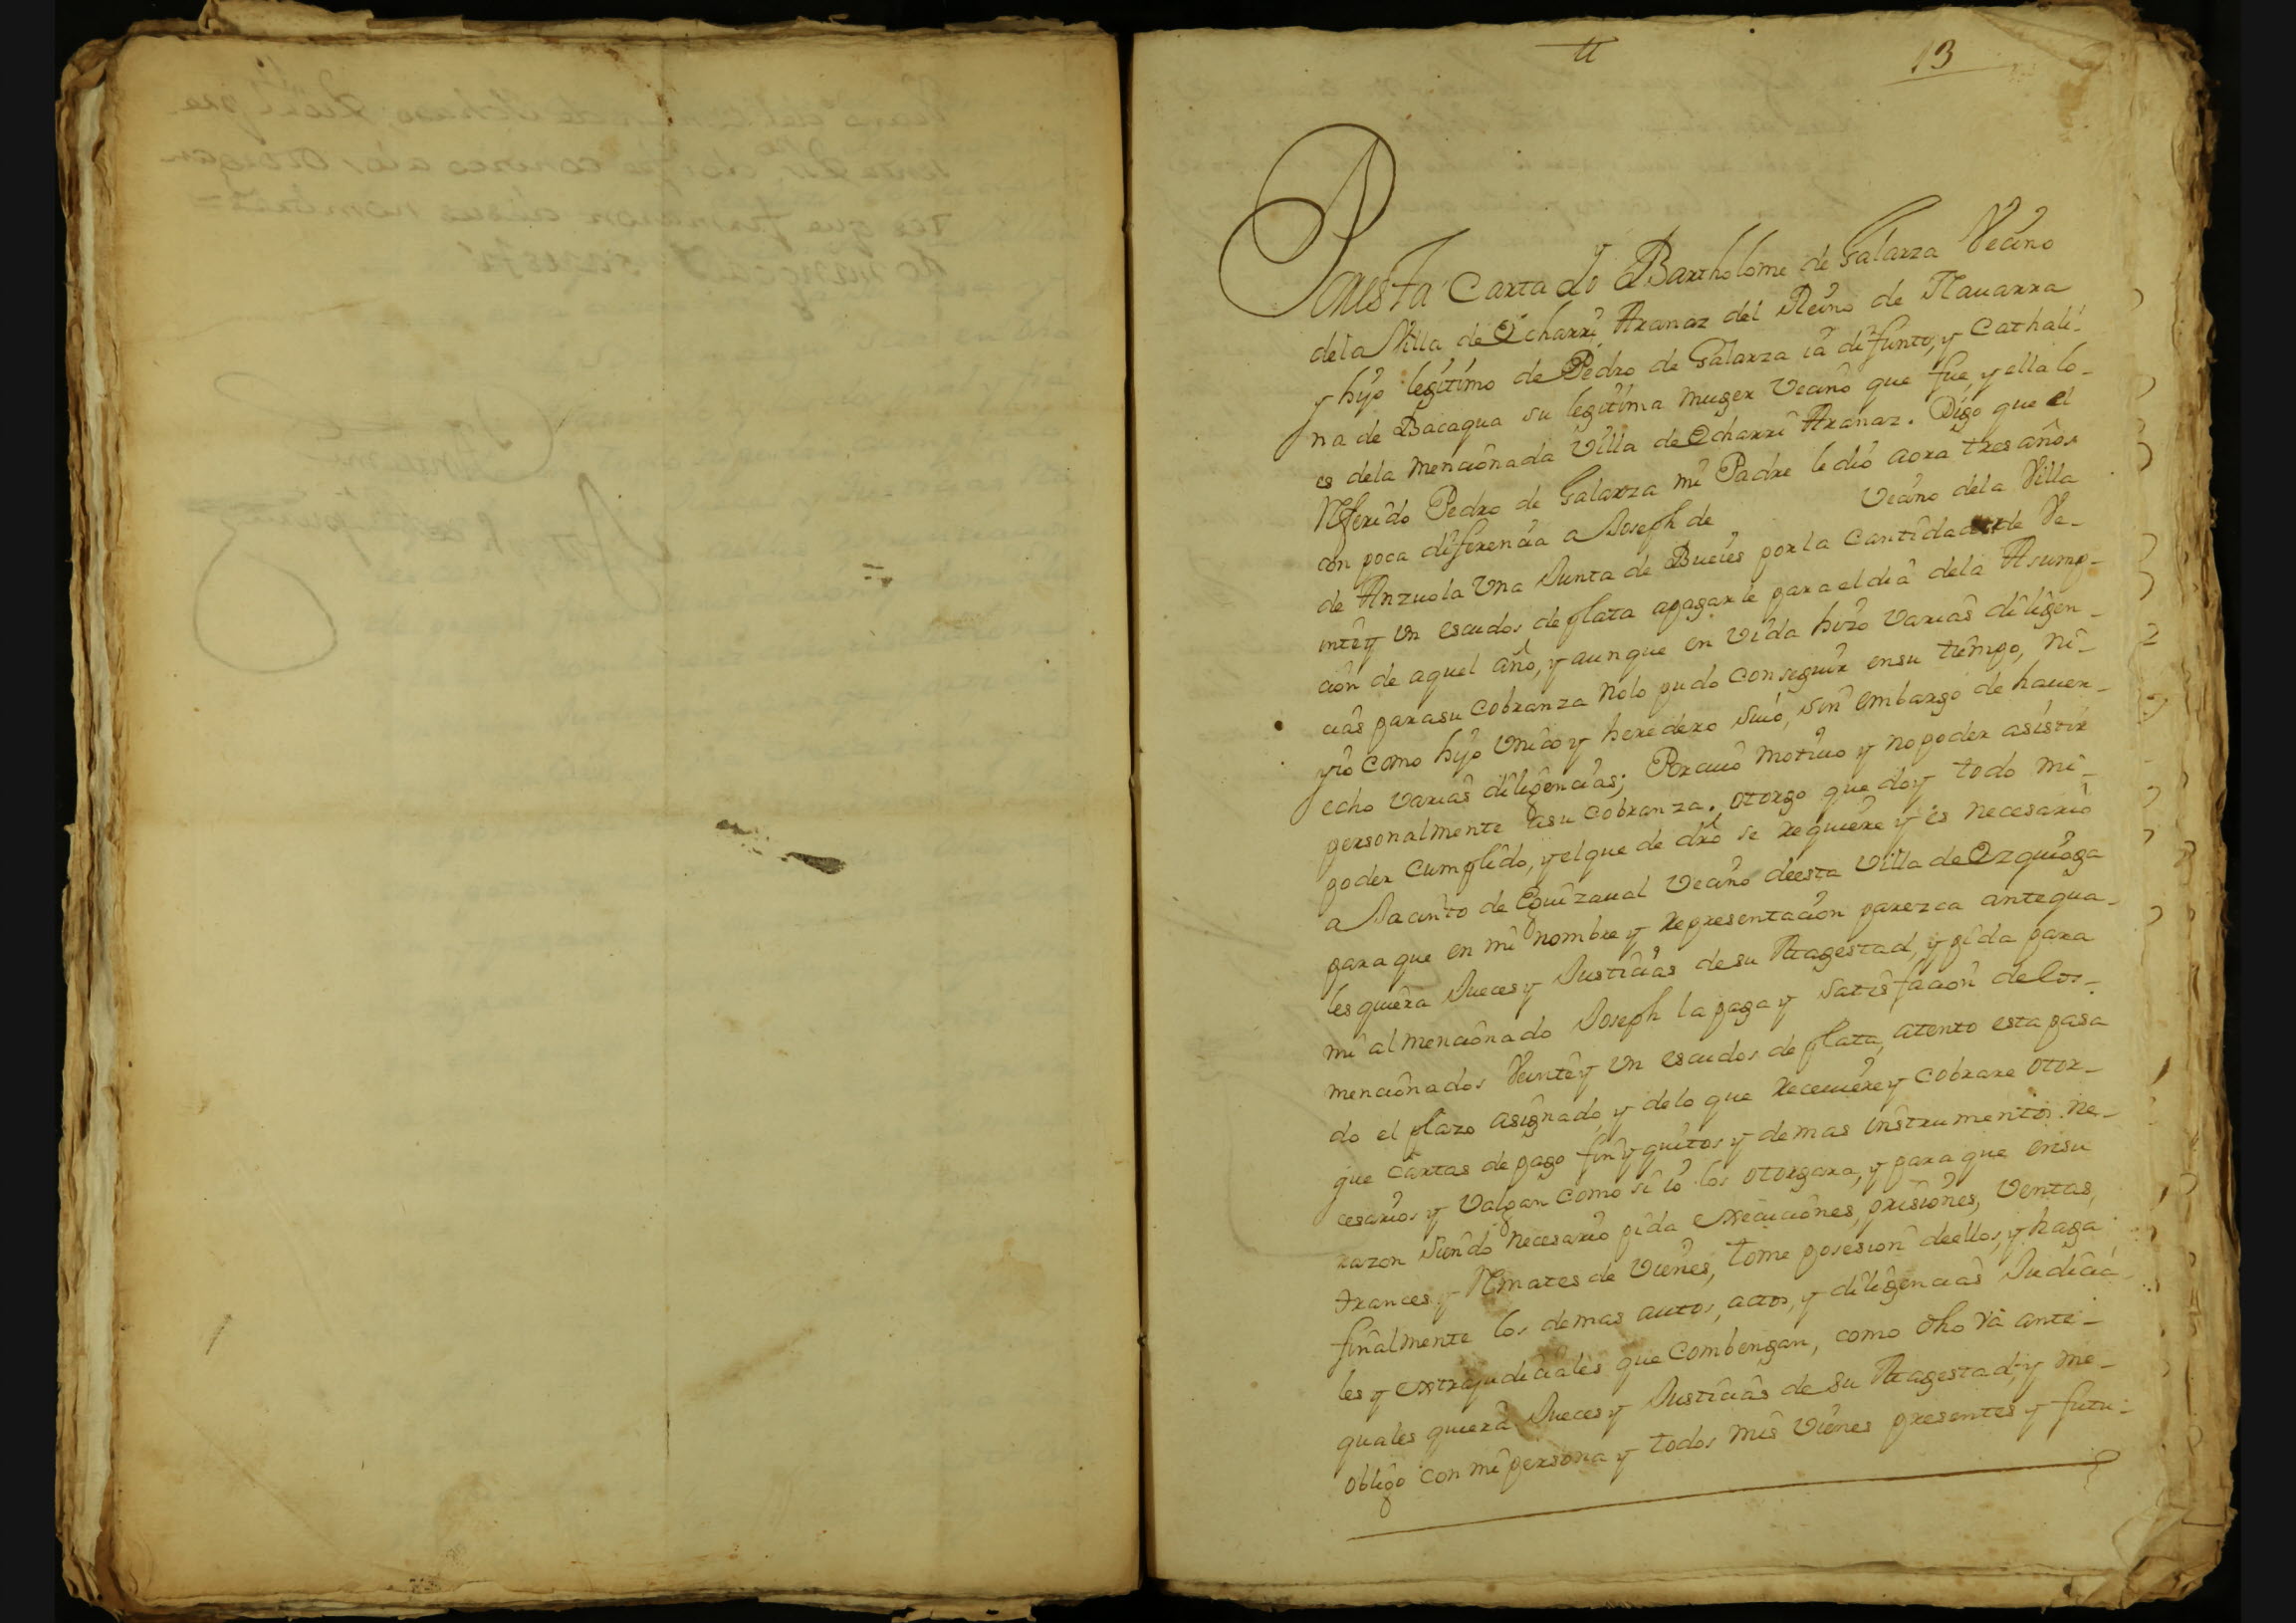 13
Por esta Carta Yo Bartholome de Galarza Vecino
de la Villa de Echarri Aranaz del Reino de Nauarra
y hijo legitimo de Pedro de Galarza ia difunto, y Cathali-
na de Bacaqua su legitima muger Vecino que fue, y ella lo-
es dela mencionada Villa de Echarri Aranaz. Digo que el
Referido Pedro de Galarza mi Padre le dio aora tres años
con poca diferencia a Joseph de Vecino dela Villa
de Anzuola Una Junta de Bueies por la Cantidad de Ve-
inte y Un escudos de plata apagarle para el dia dela Asump-
cion de aquel año, y aunque en Vida hizo Varias diligen-
cias para su Cobranza nolo pudo Conseguir ensu tiempo, ni-
yo como hijo Unico y heredero Suio, sin embargo de hauer-
echo Varias diligencias; Por cuio motiuo y no poder asistir
personalmente asu Cobranza. otorgo que doy todo mi-
poder Cumplido, y el que de dro se requiere y es necesario
a Jacinto de Eguizaual Vecino deesta Villa de Ezquioga
para que en mi nombre y Representacion parezca antequa-
lesquiera Jueces y Justicias de su Magestad, y pida para
mi al mencionado Joseph la paga y satisfacion de los-
mencionados Veinte y Un escudos de plata, atento esta pasa
do el plazo asignado, y delo que Receuiere y Cobrare otor-
gue Cartas de pago finyquitos y demas instrumentos ne-
cesarios y Valgan como si io los otorgara, y para que ensu
razon siendo necesario pida execuciones, prisiones, Ventas,
trances y Remates de Vienes, tome posesion deellos, y haga
finalmente los demas autos, actos, y diligencias Judicia-
les y extrajudiciales que Combengan, como dho va ante-
quales quiera Jueces y Justicias de Su Magestad, y me-
obligo con mi persona y todos mis Vienes presentes y futu-